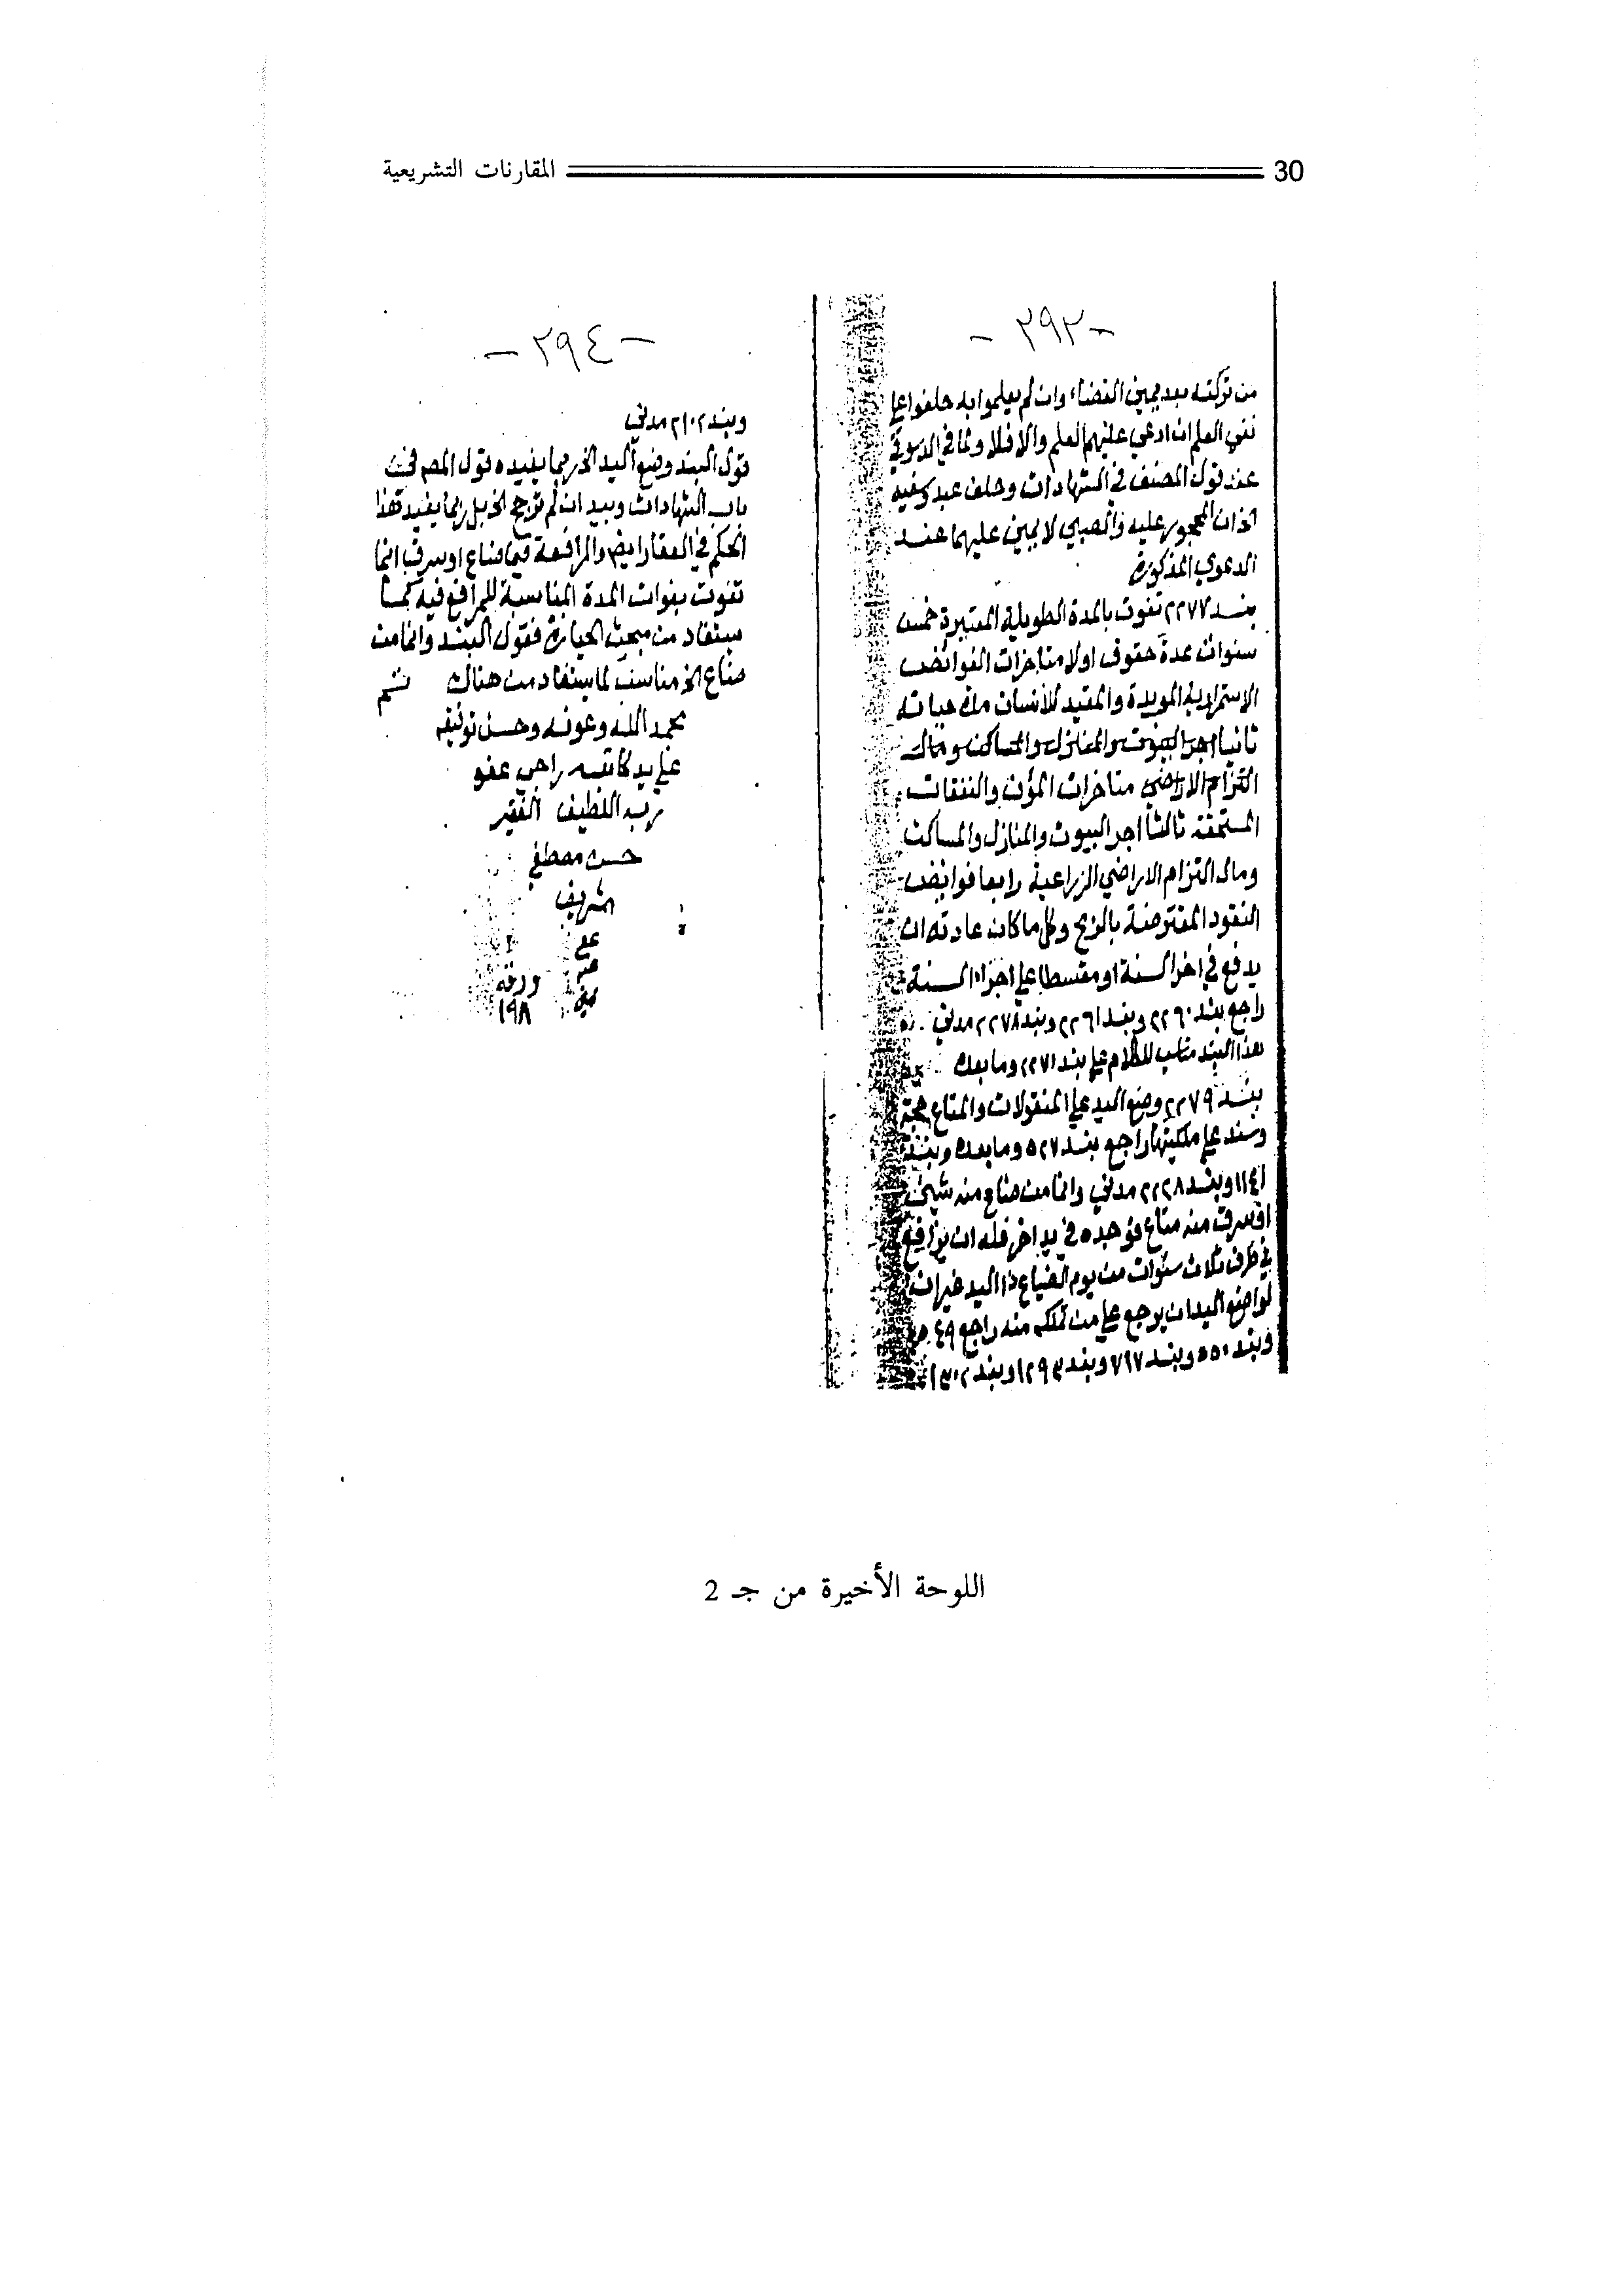 30 المقارنات التشريعية
- ٢٩٣ -
من تركته بعد يمين القضاء وان لم يعلموا به حلفوا علي
نفي العلم ان ادعي عليهم العلم والا فلا ولما في الدسوقي
عند قول المصنف في الشهادات وحلف عبد وسفيه
الخ ان المحجور عليه والصبي لا يمين عليهما عند
الدعوي المذكورة
بند ٢٢٧٧ تفوت بالمدة الطويلة المعتبرة خمس
سنوات عدة حقوق اولا متاخرات الفوائض
الاستمرارية الموبدة والمقيد للانسان مدة حياته
ثانيا اجر البيوت والمنازل والمساكن ومال
التزام الاراضي متاخرات المؤن والنفقات
المستحقة ثالثا اجر البيوت والمنازل والمساكن
ومال التزام الاراضي الزراعية رابعا فوائض
النقود المقترضة بالربح وكل ما كان عادته ان
يدفع في اخر السنة او مقسطا علي اجزاء السنة
راجع بند ٢٢٦٠ وبند ٢٢٦١ وبند ٢٢٧٨ مدني
هذا البند مناسب للكلام علي بند ٢٢٧١ وما بعده
بند ٢٢٧٩ وضع اليد علي المنقولات والمتاع حجة
وسند علي ملكيتها راجع بند ٥٢٧ وما بعده وبند
١١٤١ وبند ٢٢٢٨ مدني وانما من ضاع منه شيئ
او سرق منه متاع فوجده في يد اخر فله ان يرافع
في ظرف ثلاث سنوات من يوم الضياع ذا اليد غير ان
لواضع اليد ان يرجع علي من تملكه منه راجع ٥٤٩
وبند ٥٥٠ وبند ٧١٧ وبند ١٢٩٣ وبند ١٣٠٢
- ٢٩٤ -
وبند ٢١٠٢ مدني
قول البند وضع اليد الخ ربما يفيده قول المصـ في
باب الشهادات وبيد ان لم ترجح الخ بل ربما يفيد هذا
الحكم في العقار ايضا والمرافعة فيما ضاع او سرق انما
تفوت بفوات المدة المناسبة للمرافع فيه كما
يستفاد من مبحث الحيازة فقول البند وانما من
ضاع الخ مناسب لما يستفاد من هناك تم
بحمد الله وعونه وحسن توفيقه
علي يد كاتبه راجي عفو
ربه اللطيف الفقير
حسن مصطفي
الشريف
ورقة
١٩٨
اللوحة الأخيرة من جـ 2